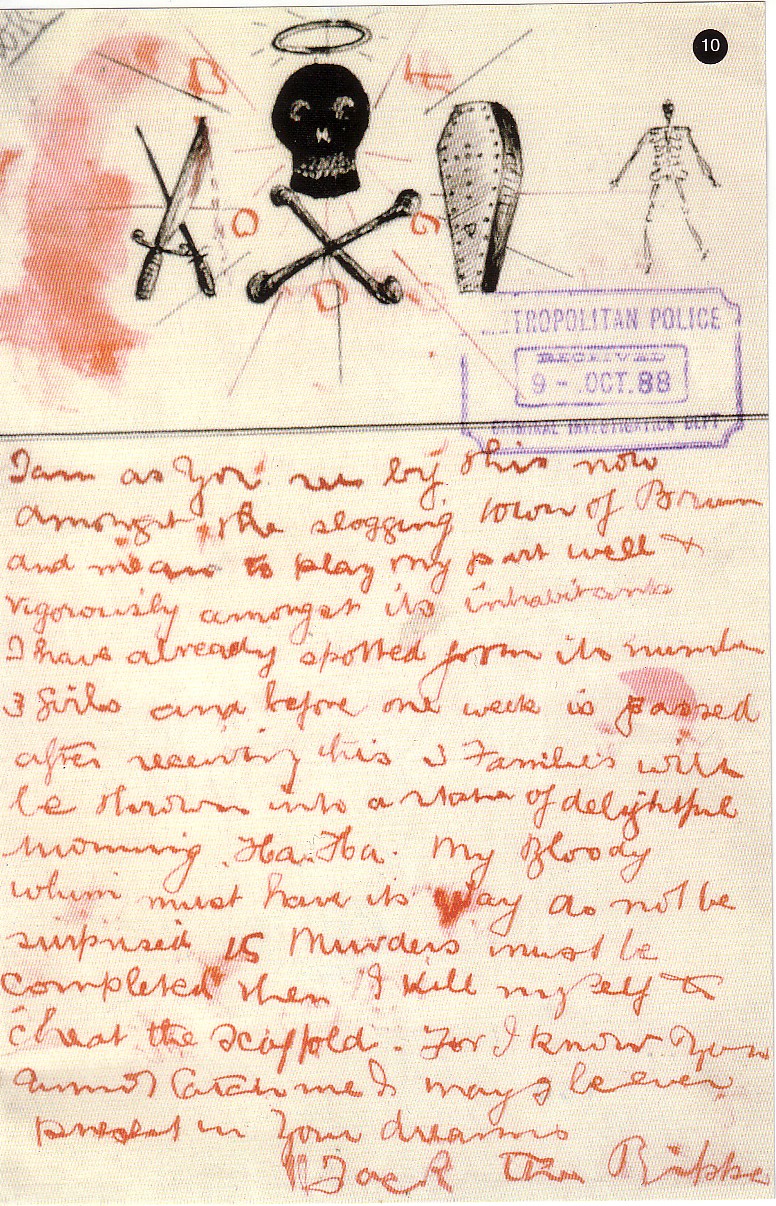 10
B H
O G
D S
TROPOLITAN POLICE
RECEIVED
9 - OCT. 88
CRIMINAL INVESTIGATION DEPT
I am as you see by this now
amongst the slogging town of Brum
and mean to play my part well &
vigorously amongst its inhabitants
I have already spotted from its number
3 Girls and before one week is passed
after receiving this 3 Families will
be thrown into a state of delightful
mourning. Ha. Ha. My Bloody
whim must have its way do not be
surprised 15 Murders must be
completed then I kill myself to
cheat the scaffold. For I know you
cannot catch me & may I be ever
present in your dreams
Jack the Rippe